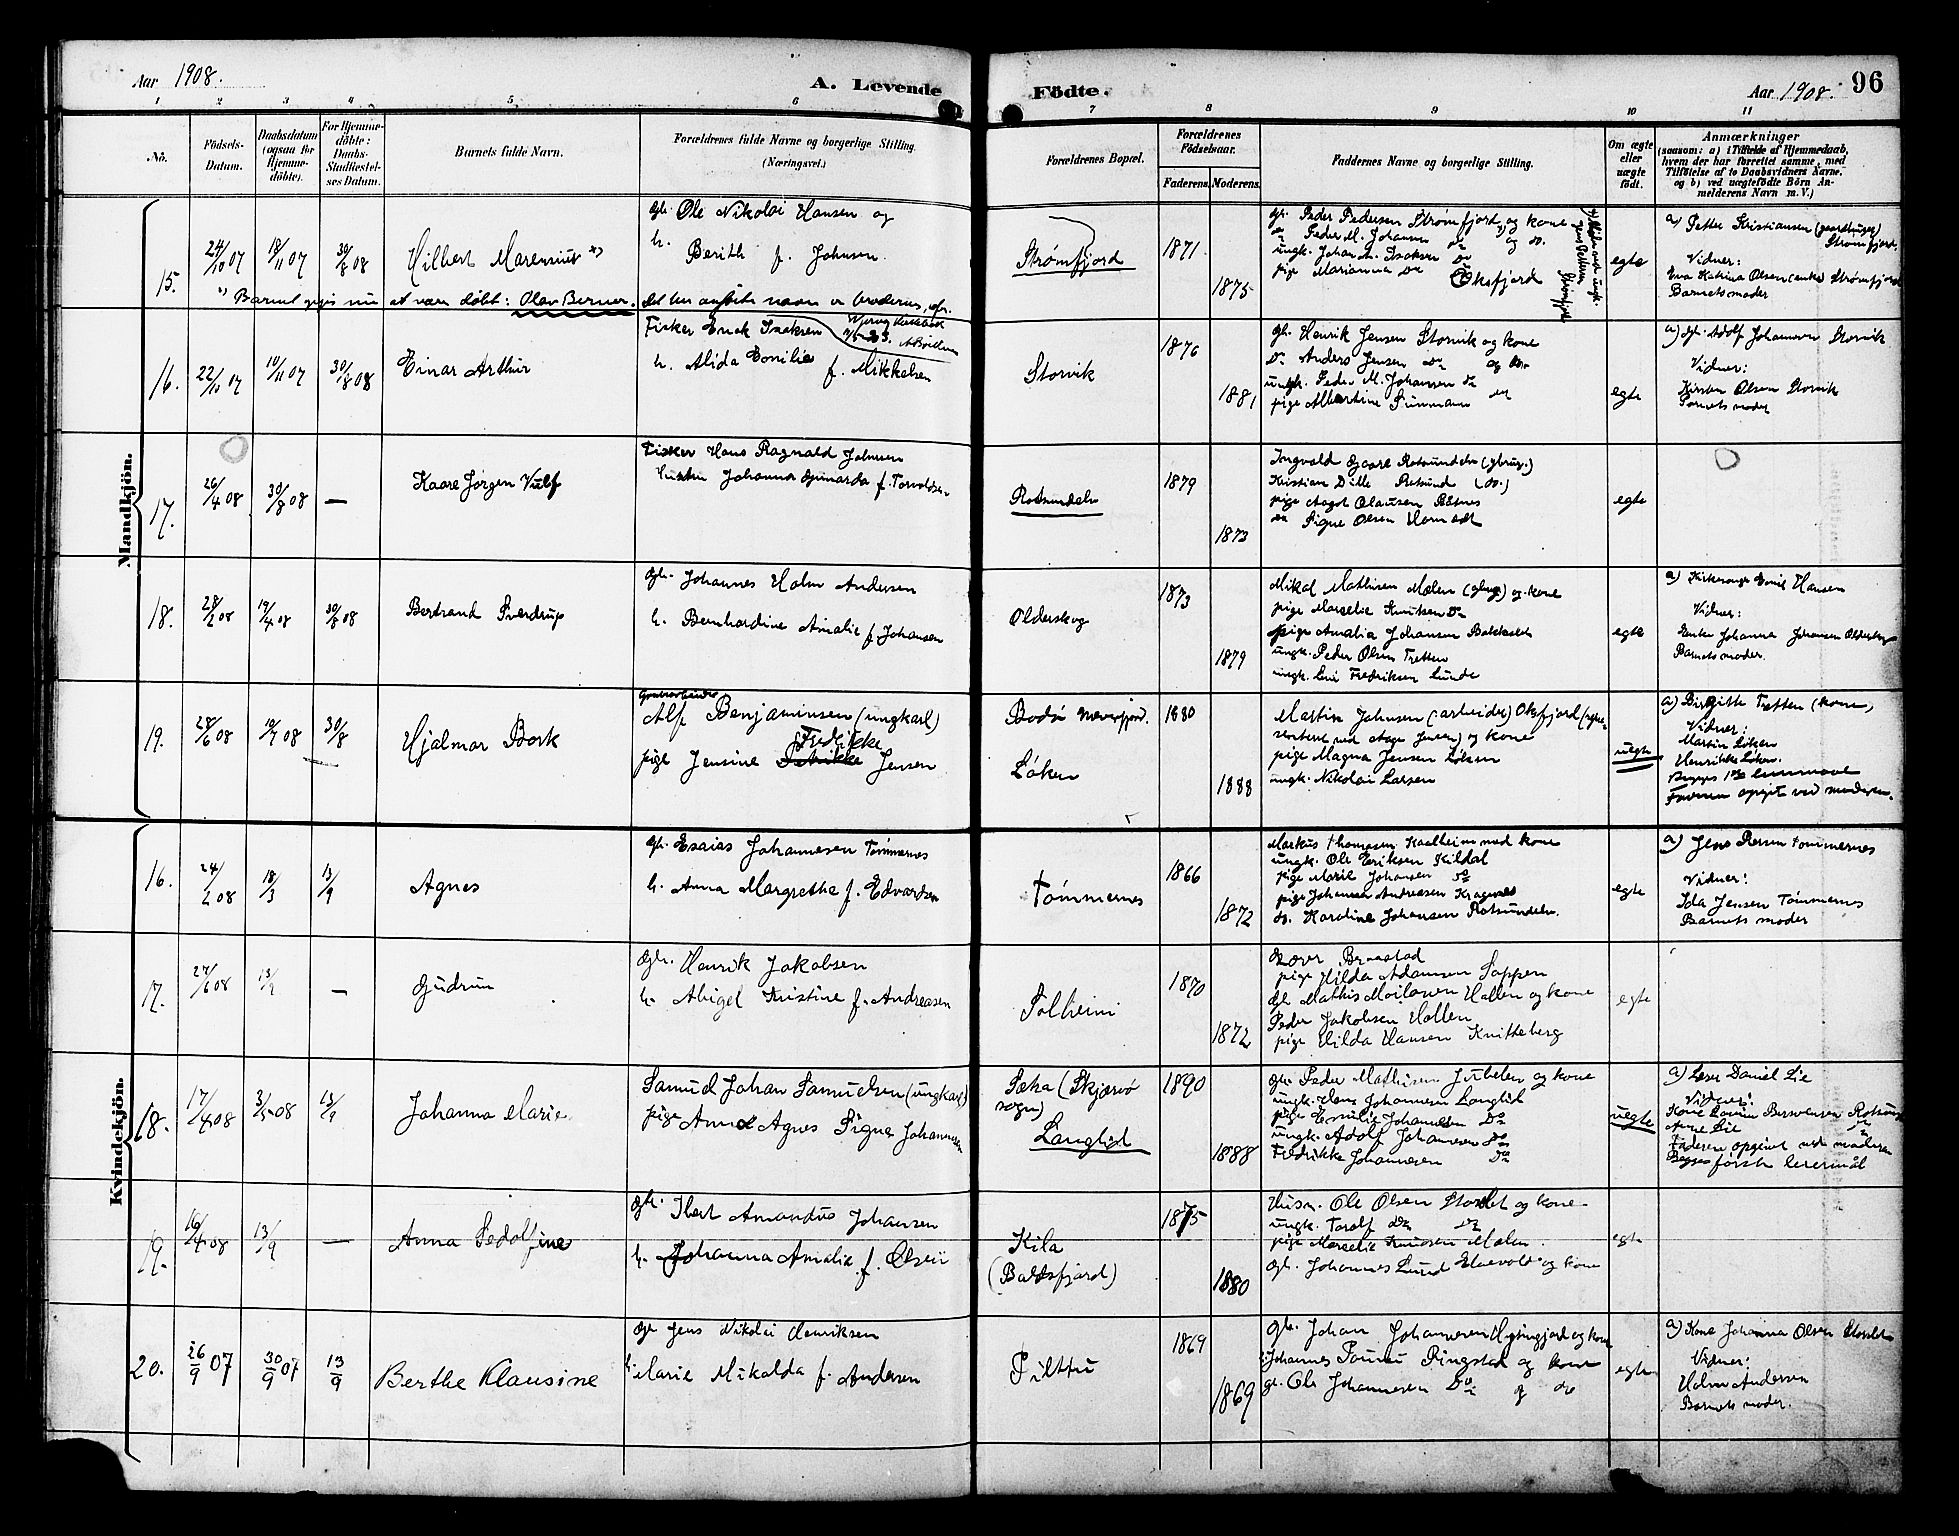 Aar 1908.
A. Levende
Födte.
Aar 1908.
96
1 2 3 4 5 6 7 8 9 10 11
No.
Födsels-Datum.
Daabsdatum (ogsaa for Hjemme-döbte).
For Hjemme-döbte: Daabs-Stadfæstel-ses Datum.
Barnets fulde Navn.
Forældrenes fulde Navne og borgerlige Stilling. (Næringsvei.)
Forældrenes Bopæl.
Forældrenes Födselsaar.
Faderens. Moderens.
Faddernes Navne og borgerlige Stilling.
Om ægte eller uægte født.
Anmærkninger
(saasom: a) i Tilfælde af Hjemmedaab, hvem der har forrettet samme, med Tilföielse af to Daabsvidners Navne, og b) ved uægtefödte Börn An-melderens Navn m. V.)
Mandkjön.
15. 24/10 07 18/11 07 30/8 08 Hilbert Marenius *)
gb. Ole Nikolai Hansen og
h. Berith f. Johnsen.
Strømfjord 1871. 1875
gb. Peder Pedersen Strømfjord og kone
do Peder M. Johansen do og do.
ungk. Johan A. Isaksen do
pige Marianna do Oksfjord
egte
a) Petter Kristiansen (gaardbruger) Strømfjord
Vidner:
Eva Katrina Olsen (enke) Strømfjord
Barnets moder
*) Barnet opgis nu at være døbt: Olav Berner. det her anførte navn er broderens,
16. 22/11 07 10/11 07 30/8 08 Einar Arthur
Fisker Erik Isaksen
h. Alida Emilie f. Mikkelsen
Storvik 1876 1881
gb. Henrik Jensen Storvik og kone
do. Anders Jensen do og do.
ungk. Peder M. Johansen do
pige Albertine Simonsen do
egte
a) gb. Adolf Johannesen Storvik
Vidner:
Kirsten Olsen Storvik
Barnets moder
17. 26/4 08 30/8 08 — Kaare Jørgen Vulf
Fisker Hans Ragnald Johnsen
Hustru Johanna f. Torvoldsen
Rotsundelv 1879 1873
Ingvald Gjære Rotsundelv (gbrug.)
Kristian Ditle Rotsund (do.)
pige Aagot Olausen
do Signe Olsen Havnnes
egte
18. 28/2 08 19/4 08 30/8 08 Bertrand Sverdrup
gb. Johannes Holm Andersen
h. Bernhardine Amalie f. Johansen
Olderskog 1873 1879
Mikal Mathisen Mælen (gbrug) og kone
pige Marselie Knutsen do
pige Amalia Johansen Bakkeslet
ungk. Peder Olsen Tretten
ungk. Fredriksen Lunde
egte
a) Kirkesanger Hansen
Vidner:
Enke Johanna Johansen Olderskog
Barnets moder.
19. 28/6 08 19/7 08 30/8 Hjalmar Bork
Grubearbeider
Alf Benjaminsen (ungkarl)
pige Jensine Fredrikke Jensen
Bodø
Løken 1880 1888
Martin Johnsen (arbeider) Oksfjord
ved Aage Jensen) og kone
pige Magna Jensen Løken
ungk. Nikolai Larsen
uegte
a) Birgitte Tretten (kone)
Vidner:
Martin Løken
Henrikke Løken.
Begges 1ste leiermaal
Faderen opgit ved moderen.
Kvindekjön.
16. 24/2 08 18/3 13/9 Agnes
gb. Esaias Johannesen Tømmernes
h. Anna Margrethe f. Edvardsen
Tømmernes 1866 1872
Markus Thomassen Kaalheim med kone
ungk. Ole Eriksen Kildal
pige Marie Johansen do
pige Johanna Andreasen Kragnes
do. Karoline Johansen Rotsundelv.
egte
a) Jens Tømmernes
Vidner:
Ida Jensen Tømmernes
Barnets moder
17. 27/6 08 13/9 — Gudrun
Gb. Henrik Jakobsen
h. Abigel Kristine f. Andreasen
Solheim 1870 1872
Braastad
pige Hilda Adamsen Sappen
Gb Mathis Moilanen Hallen og kone
Peder Jakobsen Hallen
pige Hilda Hansen Knitteberg
egte
18. 17/4 08 3/5 08 13/9 Johanna Marie
Samuel Johan Samuelsen (ungkarl)
pige Anne Agnes Signe Johannesen
(Skjærvø sogn)
Langslet 1890 1888
gb. Peder Mathisen og kone
ungk. Hans Johannesen Langslet
pige Emilie Johannesen do
ungk. Adolf Johannesen do
Fredrikke Johannesen do
uegte
a) Daniel Lie
Vidner:
Kone
Lie
Faderen opgivet ved moderen
Begges første leiermål
19. 16/4 08 13/9 — Anna Sedolfine
gb. Ilert Amandus Johansen
h. Johanna Amalie f. Olsen
Kila (Balsfjord) 1875 1880
Husm. Ole Olsen Storslet og kone
ungk. Toralf do do
pige Marselie Knudsen Mælen.
gb. Johannes Lund og kone
egte
20. 26/9 07 30/9 07 13/9 Berthe Klausine
Gb Jens Nikolai Henriksen
h. Marie Mikalda f. Andersen
Piltru 1869 1869
gb. Johan Johannesen og kone
Johannes Ringstad og kone
gb. Ole Johannesen do og do
egte
a) Kone Johanna Olsen Storslet
Vidner:
Holm Andersen
Barnets moder.